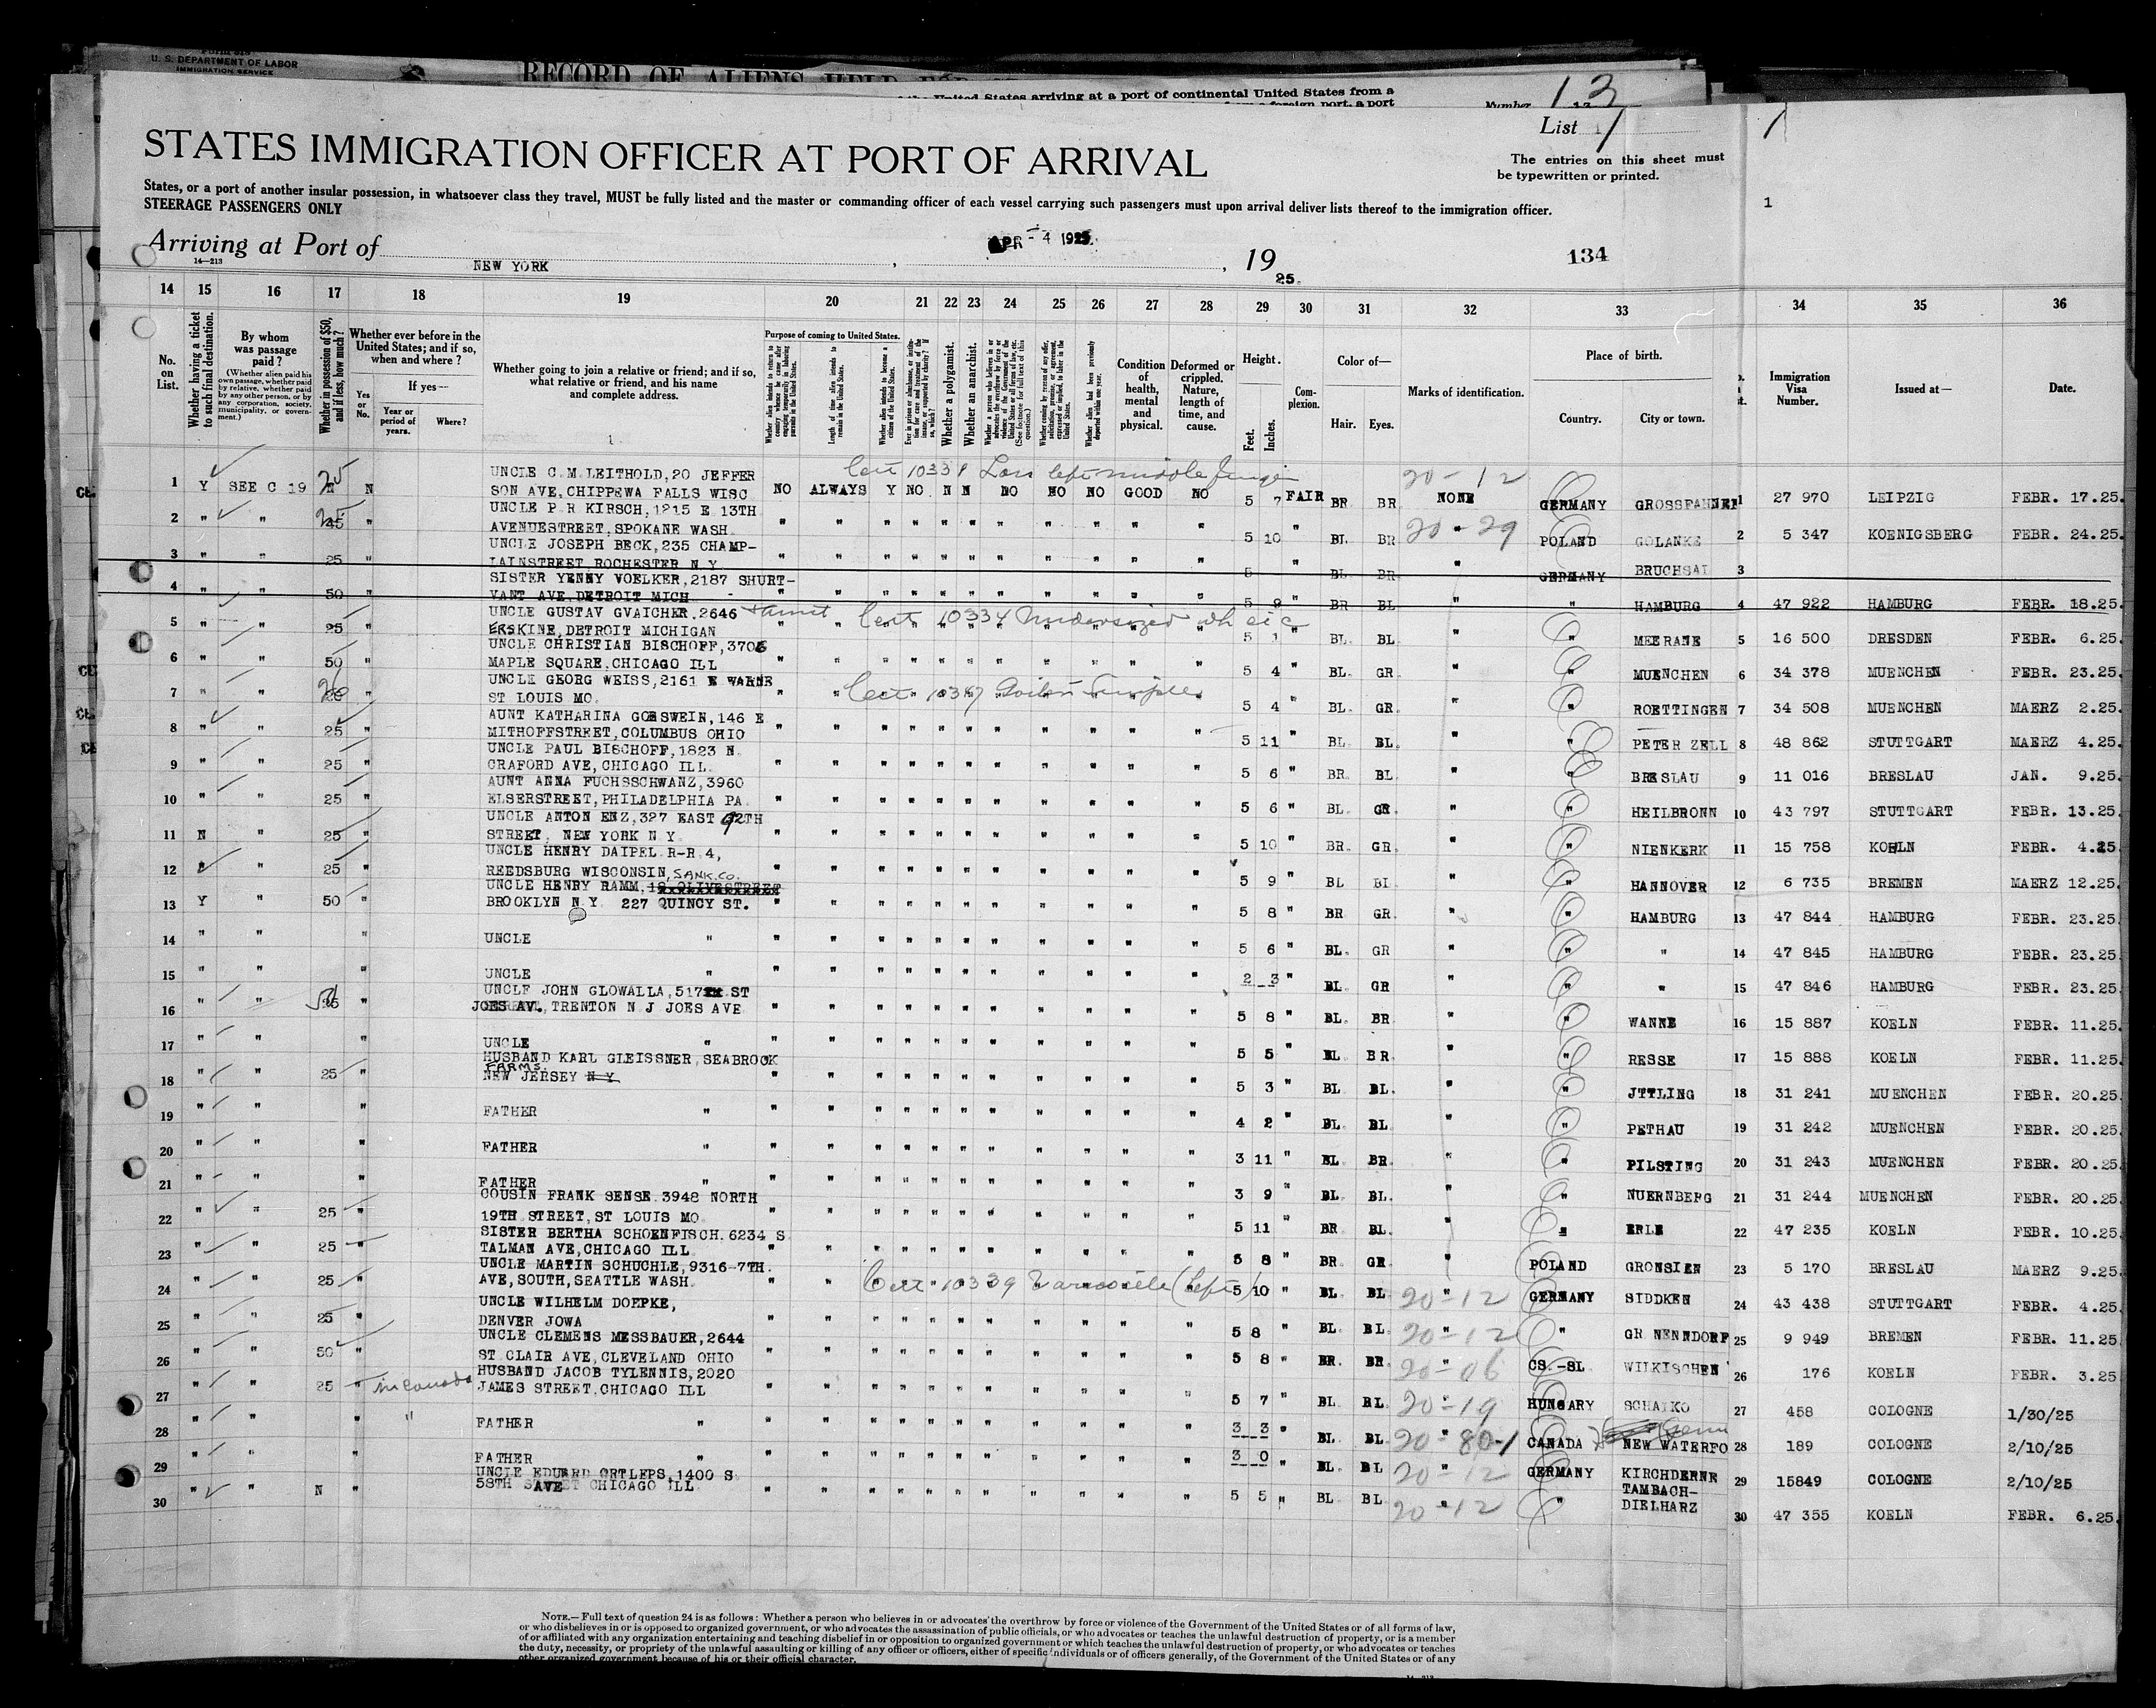 U. S. DEPARTMENT OF LABOR
IMMIGRATION SERVICE
RECORD OF ALIENS HELD
United States arriving at a port of continental United States from a
foreign port, a port
Number 13
List 1
1
STATES IMMIGRATION OFFICER AT PORT OF ARRIVAL
The entries on this sheet must
be typewritten or printed.
States, or a port of another insular possession, in whatsoever class they travel, MUST be fully listed and the master or commanding officer of each vessel carrying such passengers must upon arrival deliver lists thereof to the immigration officer.
STEERAGE PASSENGERS ONLY
1
Arriving at Port of NEW YORK, APR - 4 1925, 1925
14—213
134
14 15 16 17 18 19 20 21 22 23 24 25 26 27 28 29 30 31 32 33 34 35 36
No. on List.
Whether having a ticket to such final destination.
By whom was passage paid?
(Whether alien paid his own passage, whether paid by relative, whether paid by any other person, or by any corporation, society, municipality, or government.)
Whether in possession of $50, and if less, how much?
Whether ever before in the United States; and if so, when and where?
Yes or No.
If yes—
Year or period of years.
Where?
Whether going to join a relative or friend; and if so, what relative or friend, and his name and complete address.
Purpose of coming to United States.
Whether alien intends to return to country whence he came after engaging temporarily in laboring pursuits in the United States.
Length of time alien intends to remain in the United States.
Whether alien intends to become a citizen of the United States.
Whether a polygamist.
Whether an anarchist.
Condition of health, mental and physical.
Deformed or crippled. Nature, length of time, and cause.
Height.
Feet.
Inches.
Complexion.
Color of—
Hair.
Eyes.
Marks of identification.
Place of birth.
Country.
City or town.
Immigration Visa Number.
Issued at—
Date.
Cert 10338 Loss left middle finger
20-12
1 Y SEE C 19 25 N UNCLE C M LEITHOLD, 20 JEFFER
SON AVE, CHIPPEWA FALLS WISC NO ALWAYS Y NO N N NO NO NO GOOD NO 5 7 FAIR BR BR NONE GERMANY GROSSFAHNER 1 27 970 LEIPZIG FEBR. 17.25.
2 " " 25 " UNCLE P R KIRSCH, 1215 E 13TH
AVENUESTREET, SPOKANE WASH. " " " " " " " " " " " 5 10 " BL BR 20-29 POLAND GOLANKE 2 5 347 KOENIGSBERG FEBR. 24.25.
3 " " 25 " UNCLE JOSEPH BECK, 235 CHAMP-
LAINSTREET ROCHESTER N Y " " " " " " " " " " " 5 " BL BR " GERMANY BRUCHSAL 3
4 " " 50 " SISTER YENNY VOELKER, 2187 SHURT-
VANT AVE, DETROIT MICH " " " " " " " " " " " 5 9 " BR BL " " HAMBURG 4 47 922 HAMBURG FEBR. 18.25.
5 " " 25 " UNCLE GUSTAV GVAICHER, 2646
ERSKINE, DETROIT MICHIGAN Cert 10334 Undersized 5 1 BL. BL. " " MEERANE 5 16 500 DRESDEN FEBR. 6.25.
6 " " 50 " UNCLE CHRISTIAN BISCHOFF, 3706
MAPLE SQUARE, CHICAGO ILL " " " " " " " " " " " 5 4 " BL. GR. " " MUENCHEN 6 34 378 MUENCHEN FEBR. 23.25.
7 " " 26 " UNCLE GEORG WEISS, 2161 E WARNE
ST LOUIS MO. Cert 10337 5 4 " BL. GR. " " ROETTINGEN 7 34 508 MUENCHEN MAERZ 2.25.
8 " " 25 " AUNT KATHARINA GOESWEIN, 146 E
MITHOFFSTREET, COLUMBUS OHIO " " " " " " " " " " " 5 11 " BL. BL. " " PETER ZELL 8 48 862 STUTTGART MAERZ 4.25.
9 " " 25 " UNCLE PAUL BISCHOFF, 1823 N.
CRAFORD AVE, CHICAGO ILL. " " " " " " " " " " " 5 6 " BR. BL. " " BRESLAU 9 11 016 BRESLAU JAN. 9.25.
10 " " 25 " AUNT ANNA FUCHSSCHWANZ, 3960
ELSERSTREET, PHILADELPHIA PA. " " " " " " " " " " " 5 6 " BL. GR. " " HEILBRONN 10 43 797 STUTTGART FEBR. 13.25.
11 N " 25 " UNCLE ANTON ENZ, 327 EAST 92TH
STREET, NEW YORK N Y " " " " " " " " " " " 5 10 " BR. GR. " " NIENKERK 11 15 758 KOELN FEBR. 4.25.
12 " " 25 " UNCLE HENRY DAIPEL R-R 4,
REEDSBURG WISCONSIN, SANK.CO. " " " " " " " " " " " 5 9 " BL BL " " HANNOVER 12 6 735 BREMEN MAERZ 12.25.
13 Y " 50 " UNCLE HENRY RAMM, 18 OLIVESTREET
BROOKLYN N.Y. 227 QUINCY ST. " " " " " " " " " " " 5 8 " BR GR. " " HAMBURG 13 47 844 HAMBURG FEBR. 23.25.
14 " " " UNCLE " " " " " " " " " " " " 5 6 " BL. GR " " " 14 47 845 HAMBURG FEBR. 23.25.
15 " " " UNCLE " " " " " " " " " " " " 2 3 " BL. GR " " " 15 47 846 HAMBURG FEBR. 23.25.
16 " " 50 " UNCLE JOHN GLOWALLA, 517 ST
JOES AV. TRENTON N J JOES AVE " " " " " " " " " " " 5 8 " BL. BR. " " WANNE 16 15 887 KOELN FEBR. 11.25.
17 " " " UNCLE " " " " " " " " " " " " 5 5 " BL BR. " " RESSE 17 15 888 KOELN FEBR. 11.25.
18 " " 25 " HUSBAND KARL GLEISSNER, SEABROOK
FARMS.
NEW JERSEY N.Y. " " " " " " " " " " " 5 3 " BL BL. " " JTTLING 18 31 241 MUENCHEN FEBR. 20.25.
19 " " " FATHER " " " " " " " " " " " " 4 2 " BL. BL. " " PETHAU 19 31 242 MUENCHEN FEBR. 20.25.
20 " " " FATHER " " " " " " " " " " " " 3 11 " BL BR. " " PILSTING 20 31 243 MUENCHEN FEBR. 20.25.
21 " " " FATHER " " " " " " " " " " " " 3 9 " BL. BL. " " NUERNBERG 21 31 244 MUENCHEN FEBR. 20.25.
22 " " 25 " COUSIN FRANK SENSE. 3948 NORTH
19TH STREET, ST LOUIS MO. " " " " " " " " " " " 5 11 " BR BL. " " ERLE 22 47 235 KOELN FEBR. 10.25.
23 " " 25 " SISTER BERTHA SCHOENFISCH. 6234 S
TALMAN AVE, CHICAGO ILL. " " " " " " " " " " " 5 8 " BR GR. " POLAND GRONSIEN 23 5 170 BRESLAU MAERZ 9.25.
24 " " 25 " UNCLE MARTIN SCHUCHLE, 9316-7TH.
AVE, SOUTH, SEATTLE WASH. Cert 10339 Varicocele (left) 5 10 " BL BL 20-12 GERMANY SIDDKEN 24 43 438 STUTTGART FEBR. 4.25.
25 " " 25 " UNCLE WILHELM DOEPKE,
DENVER JOWA " " " " " " " " " " " 5 8 " BL. BL. 20-12 " GR NENNDORF 25 9 949 BREMEN FEBR. 11.25.
26 " " 50 " UNCLE CLEMENS MESSBAUER, 2644
ST. CLAIR AVE, CLEVELAND OHIO " " " " " " " " " " " 5 8 " BR. BR. 20-06 CS.-SL WILKISCHEN 26 176 KOELN FEBR. 3.25.
27 " " 25 " in Canada HUSBAND JACOB TYLENNIS, 2020
JAMES STREET, CHICAGO ILL " " " " " " " " " " " 5 7 " BL BL. 20-19 HUNGARY SCHATKO 27 458 COLOGNE 1/30/25
28 " " " " FATHER " " " " " " " " " " " " 3 3 " BL. BL. 20-80-1 CANADA NEW WATERFO 28 189 COLOGNE 2/10/25
29 " " " FATHER " " " " " " " " " " " " 3 0 " BL. BL 20-12 GERMANY KIRCHDERNE 29 15849 COLOGNE 2/10/25
30 " " N " UNCLE EDUARD ORTLEPS, 1400 S.
58TH AVE CHICAGO ILL. " " " " " " " " " " " 5 5 " BL BL 20-12 " TAMBACH-
DIELHARZ 30 47 355 KOELN FEBR. 6.25.
NOTE.—Full text of question 24 is as follows: Whether a person who believes in or advocates the overthrow by force or violence of the Government of the United States or of all forms of law,
or who disbelieves in or is opposed to organized government, or who advocates the assassination of public officials, or who advocates or teaches the unlawful destruction of property, or is a member
of or affiliated with any organization entertaining and teaching disbelief in or opposition to organized government or which teaches the unlawful destruction of property, or who advocates or teaches
the duty, necessity, or propriety of the unlawful assaulting or killing of any officer or officers, either of specific individuals or of officers generally, of the Government of the United States or of any
other organized government because of his or their official character.